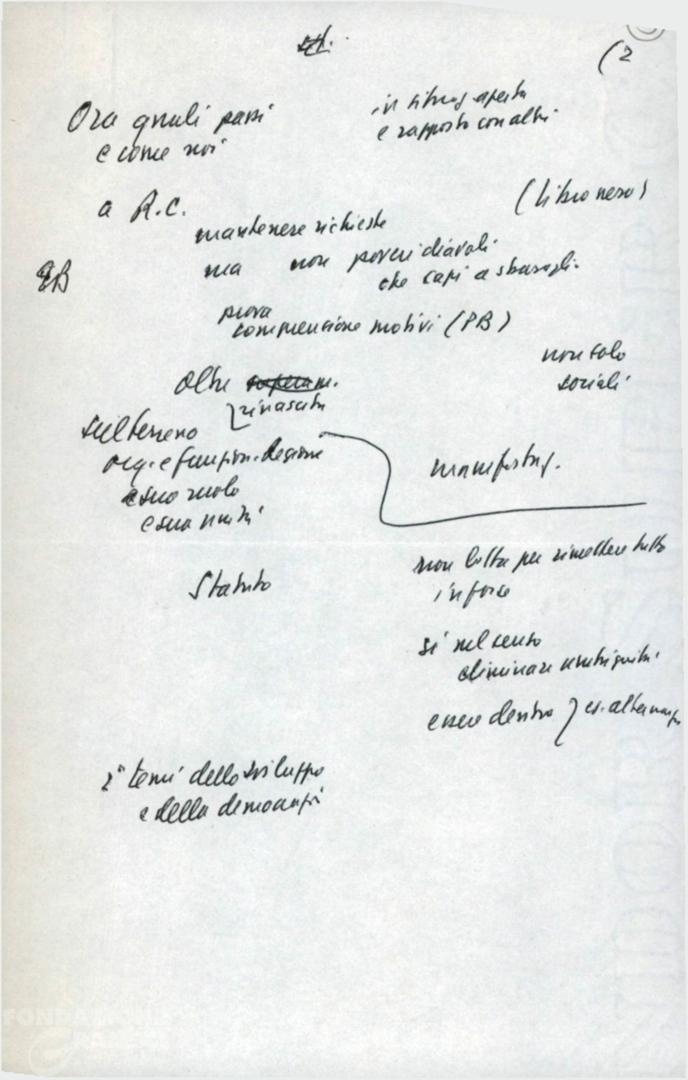 (2
Ora quali passi
e come noi
in situaz aperta
e rapporto con altri
a R.C.
(libro nero)
mantenere richieste
ma non poveri diavoli
che capi a sbaragli
EB
prova
comprensione motivi (PB)
non solo
sociali
oltre
rinascita
sul terreno
org. e funzion. Regione
e suo ruolo
e sua unità
manifestaz.
Statuto
non lotta per rimettere tutto
in forse
si nel senso
eliminare ambiguità
essere dentro } es. alternanza
i temi dello sviluppo
e della democrazia
FONDAZIONE